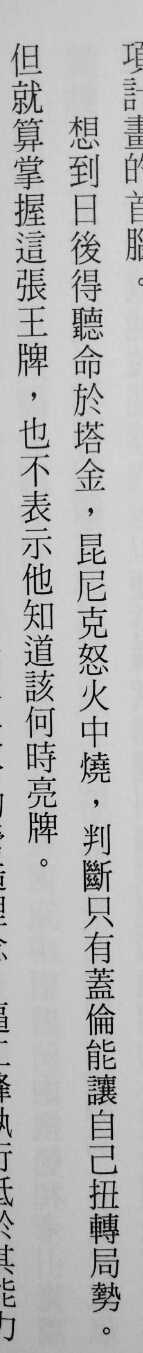 項計畫的首腦。
想到日後得聽命於塔金，昆尼克怒火中燒，判斷只有蓋倫能讓自己扭轉局勢。
但就算掌握這張王牌，也不表示他知道該何時亮牌。